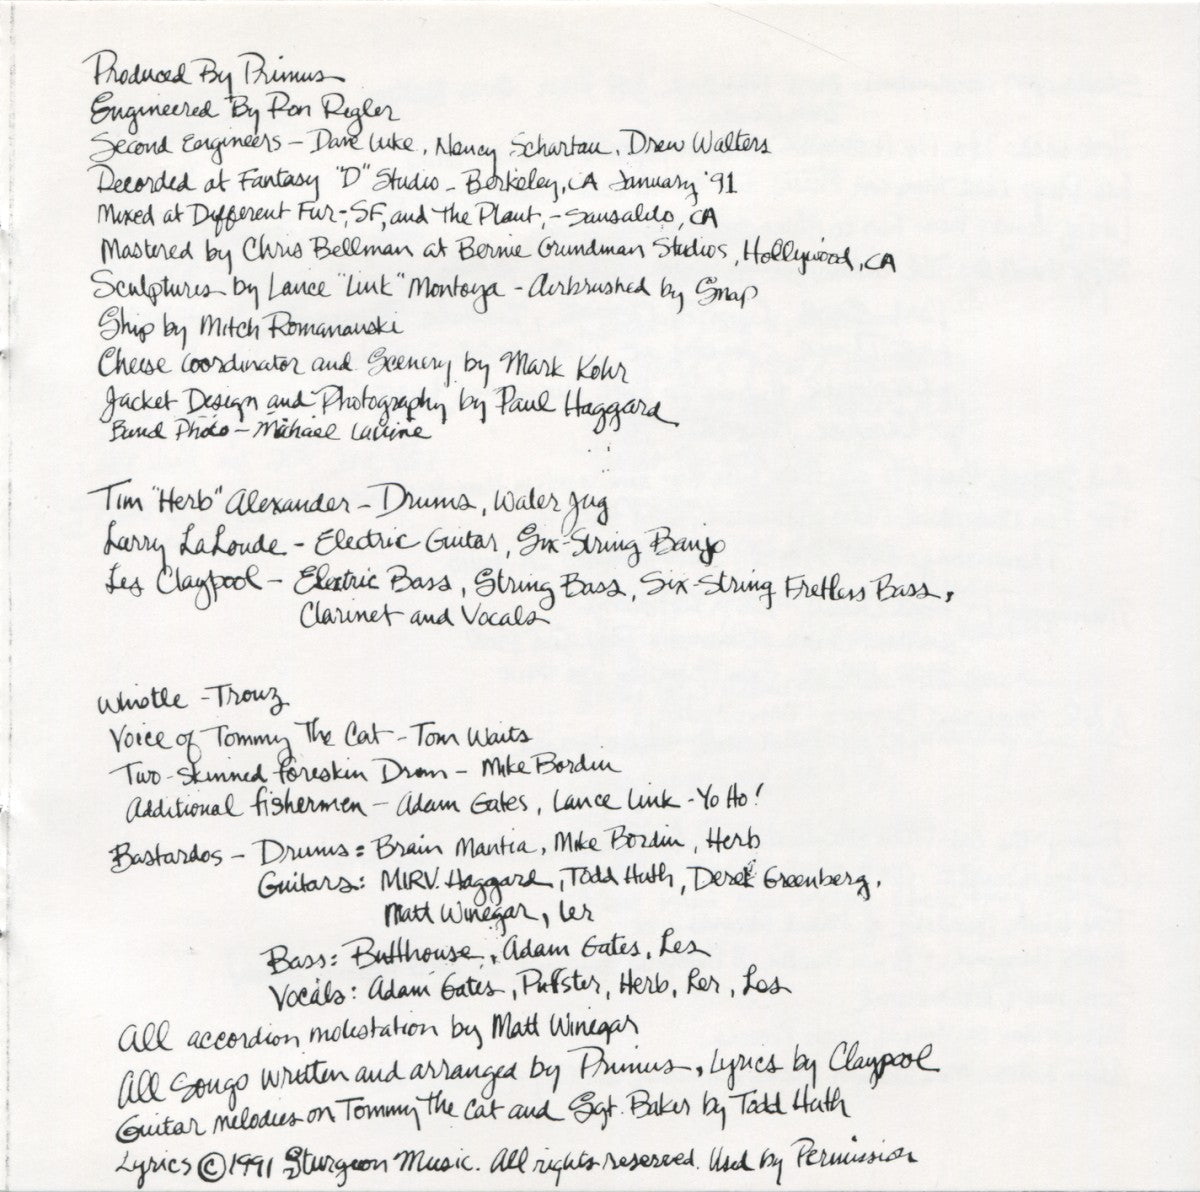 Produced By Primus
Engineered By Ron Rigler
Second Engineers – Dave Luke, Nancy Schartau, Drew Walters
Recorded at Fantasy "D" Studio – Berkeley, CA January '91
Mixed at Different Fur, SF, and The Plant, – Sausalito, CA
Mastered by Chris Bellman at Bernie Grundman Studios, Hollywood, CA
Sculptures by Lance "Link" Montoya – Airbrushed by Snap
Ship by Mitch Romanauski
Cheese Coordinator and Scenery by Mark Kohr
Jacket Design and Photography by Paul Haggard
Band Photo – Michael Lavine
Tim "Herb" Alexander – Drums, Water Jug
Larry LaLonde – Electric Guitar, Six-String Banjo
Les Claypool – Electric Bass, String Bass, Six-String Fretless Bass,
Clarinet and Vocals
Whistle – Trouz
Voice of Tommy The Cat – Tom Waits
Two-Skinned foreskin Drum – Mike Bordin
Additional fishermen – Adam Gates, Lance Link – Yo Ho!
Bastardos – Drums: Brain Mantia, Mike Bordin, Herb
Guitars: MIRV. Haggard, Todd Huth, Derek Greenberg,
Matt Winegar, Ler
Bass: Butthouse, Adam Gates, Les
Vocals: Adam Gates, Puffster, Herb, Ler, Les
All accordion molestation by Matt Winegar
All Songs written and arranged by Primus, Lyrics by Claypool
Guitar melodies on Tommy The Cat and Sgt. Baker by Todd Huth
Lyrics © 1991 Sturgeon Music. All rights reserved. Used by Permission